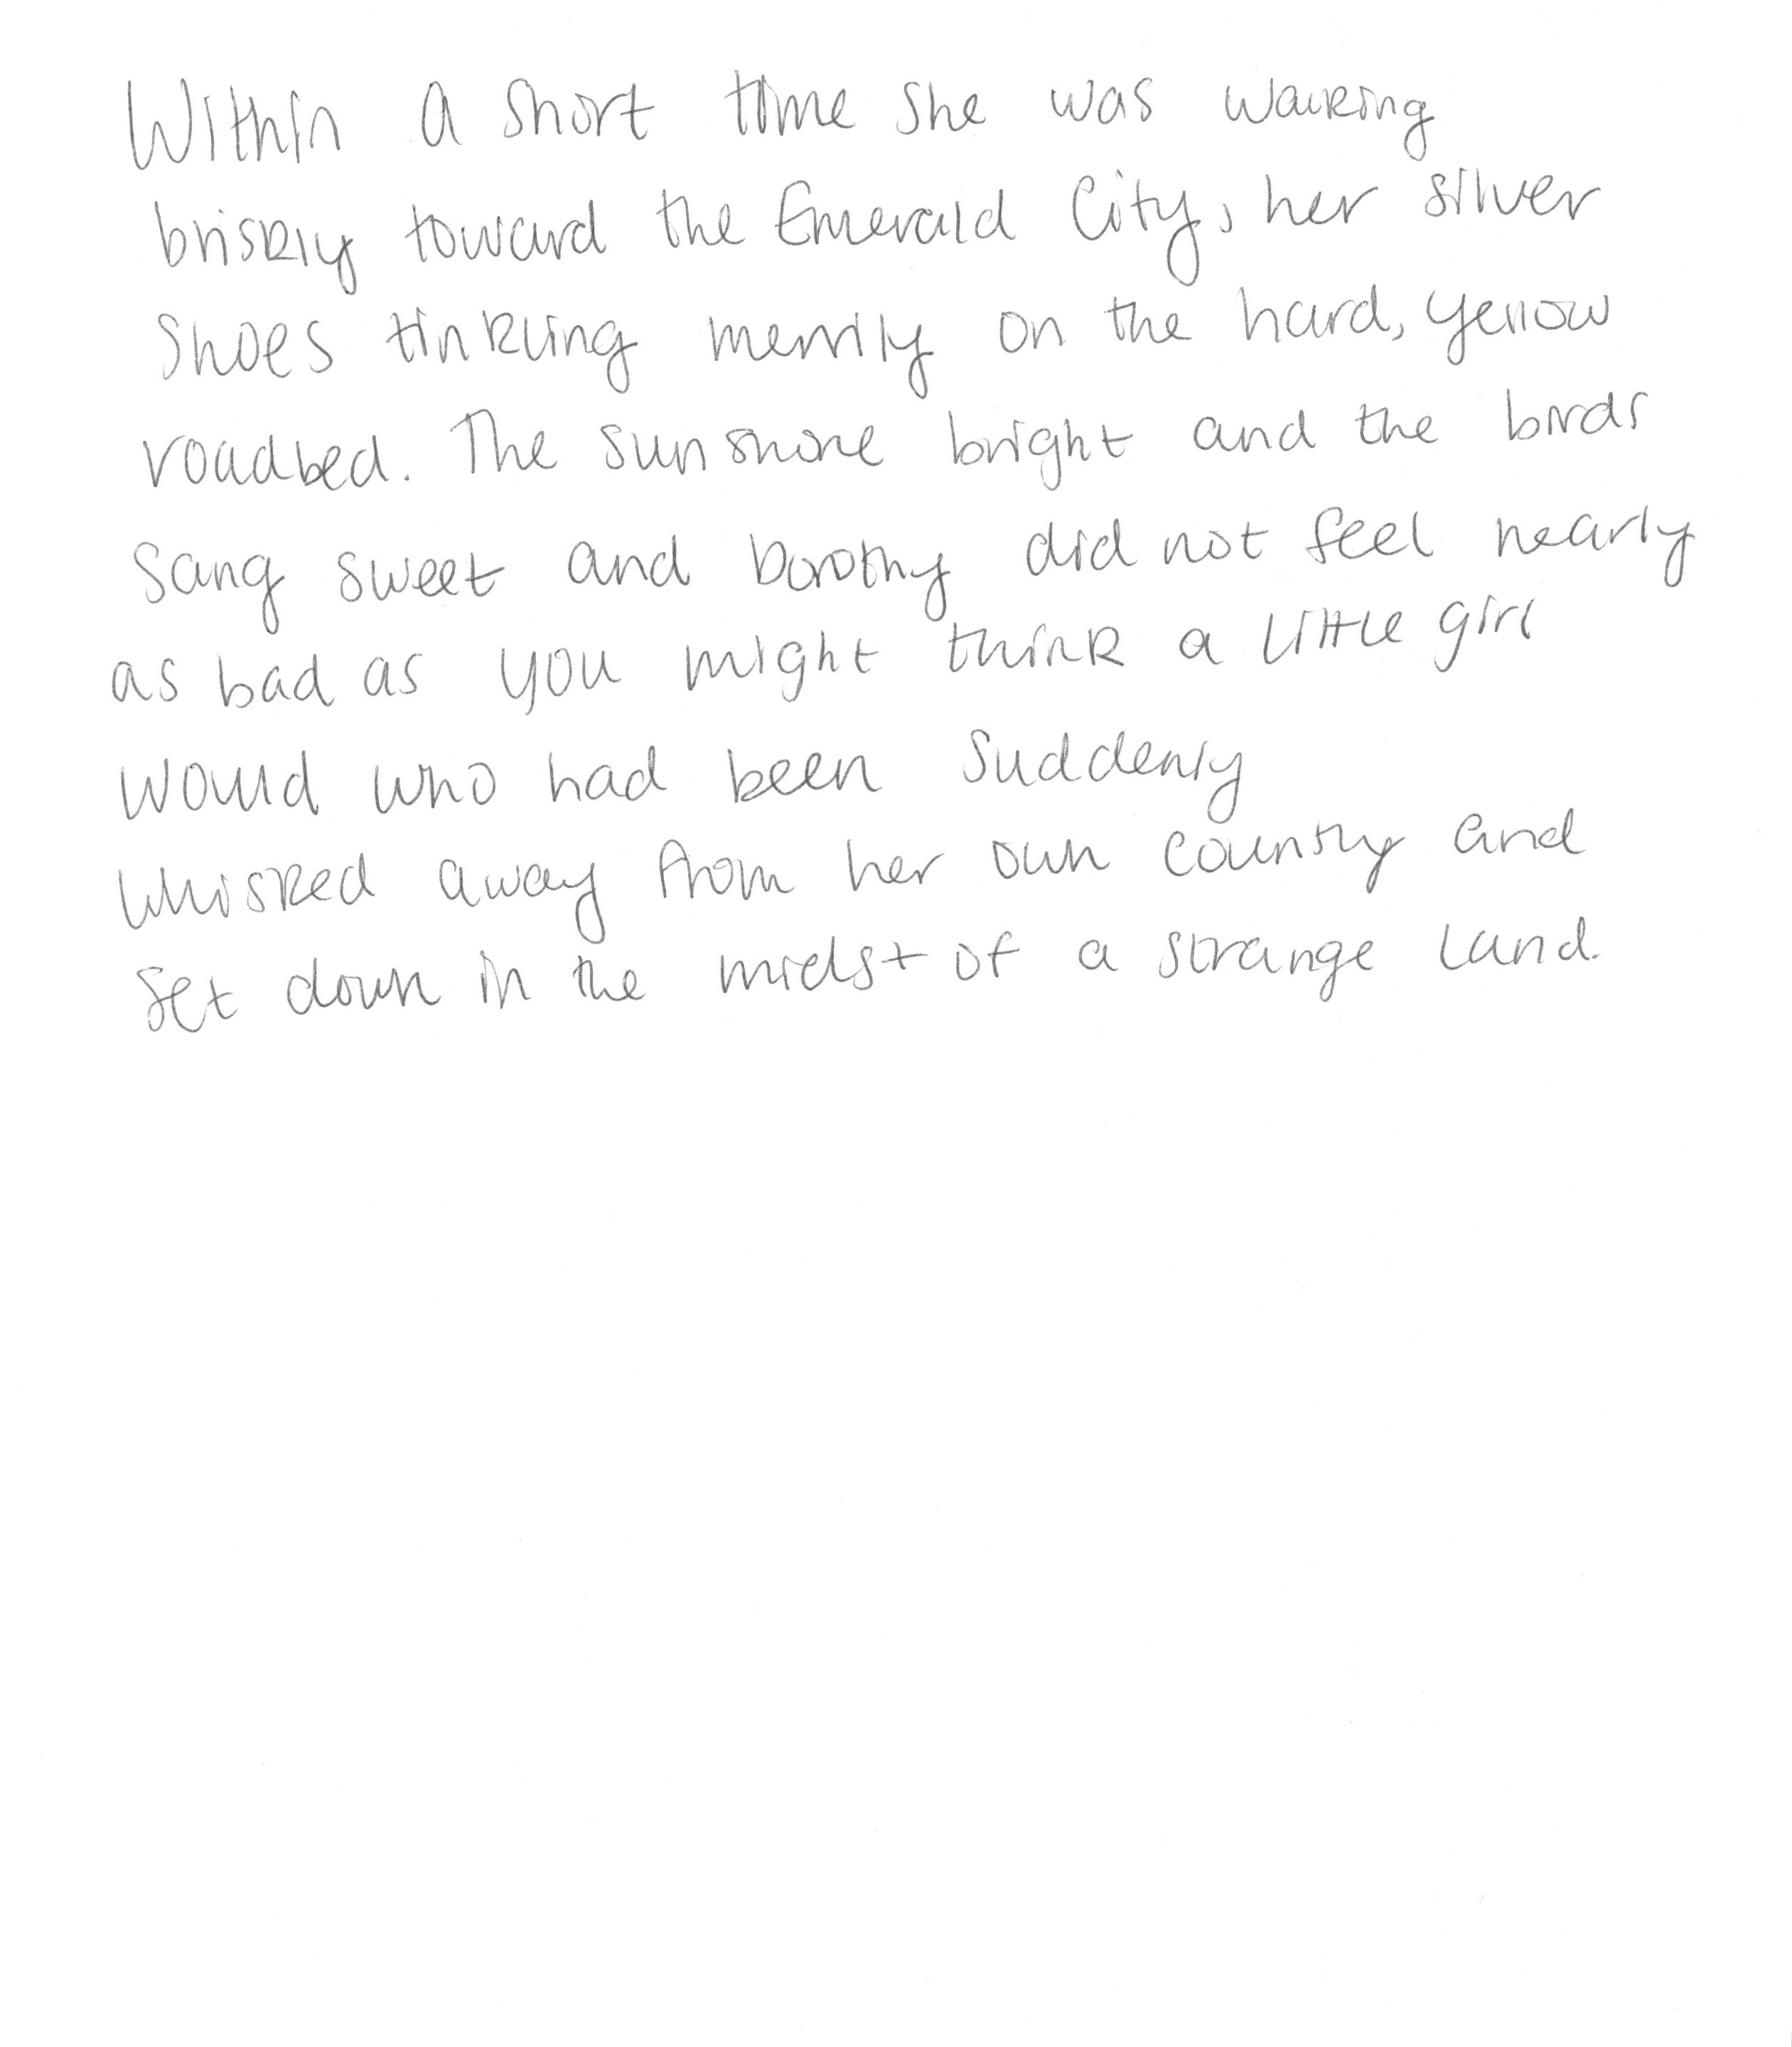 Within a short time she was walking
briskly toward the Emerald City, her silver
Shoes tinkling merrily on the hard, yellow
roadbed. The sun shone bright and the birds
sang sweet and Dorothy did not feel nearly
as bad as you might think a little girl
would who had been suddenly
whisked away from her own country and
set down in the midst of a strange land.